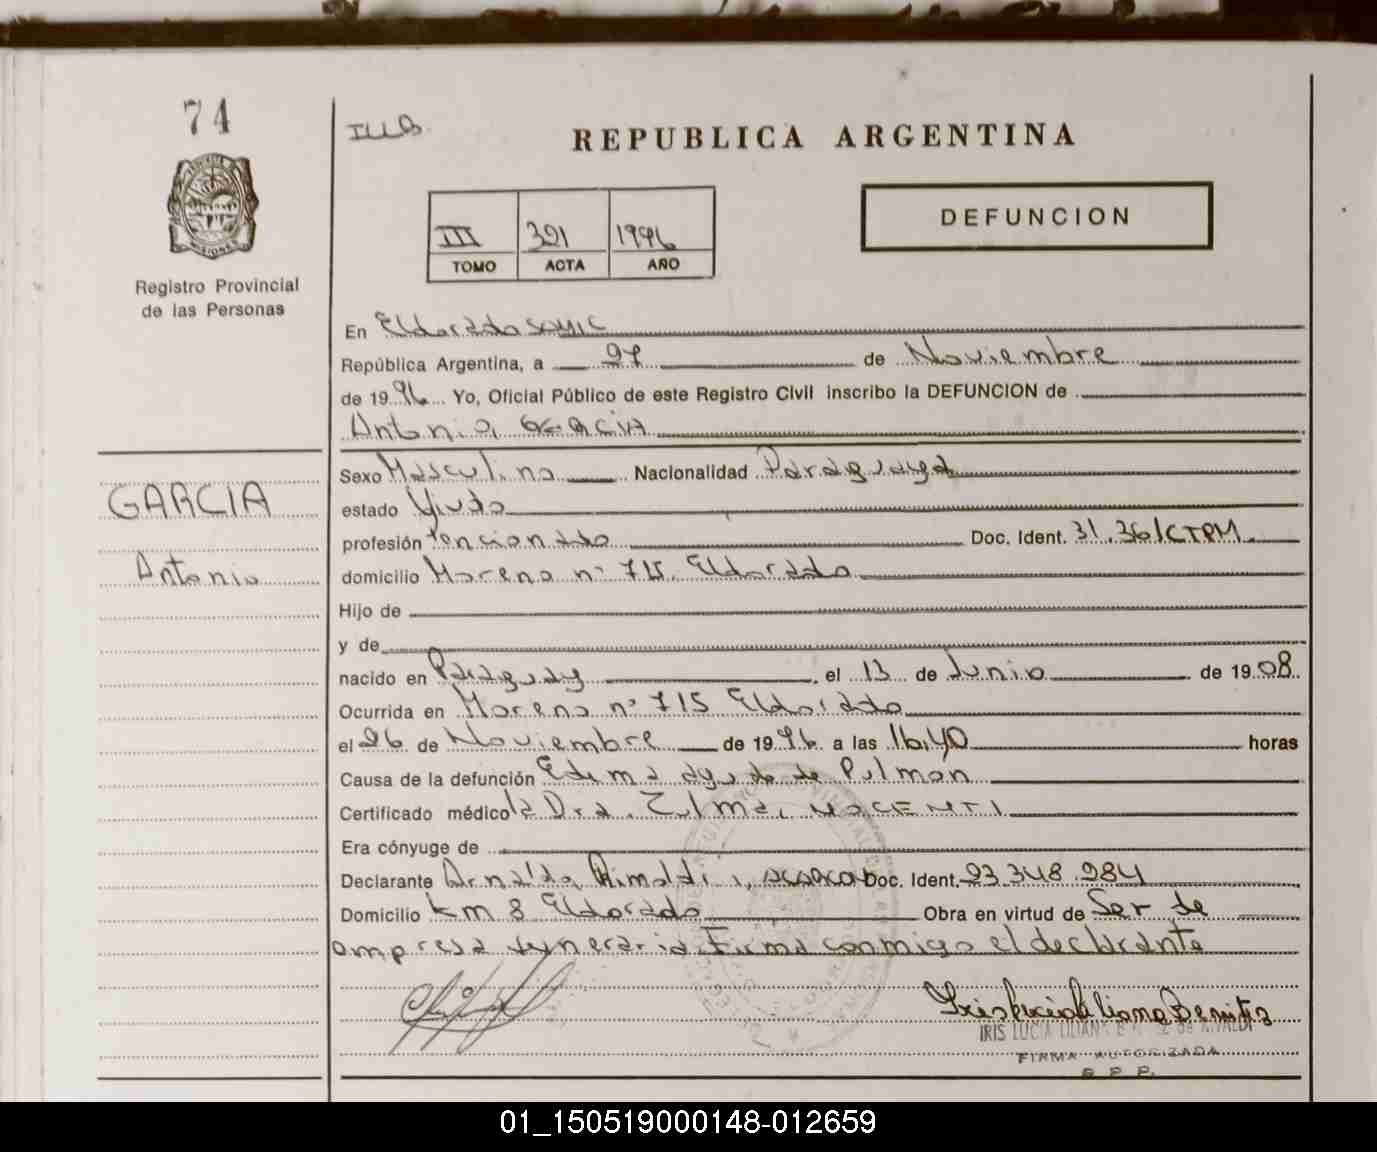 74
REPUBLICA ARGENTINA
DEFUNCION
III 321 1996
TOMO ACTA AÑO
MISIONES
Registro Provincial
de las Personas
En Eldorado SAMIC
República Argentina, a 27 de Noviembre
de 1996 Yo, Oficial Público de este Registro Civil inscribo la DEFUNCION de
Antonio, GARCIA
Sexo Masculino Nacionalidad Paraguaya
GARCIA
estado Viudo
profesión Pencionado Doc. Ident. 31.361CTPM.
Antonio
domicilio Moreno nº 715. Eldorado
Hijo de
y de
nacido en Paraguay el 13 de Junio de 1908
Ocurrida en Moreno nº 715 Eldorado
el 26 de Noviembre de 1996 a las 16,40 horas
Causa de la defunción Edema agudo de Pulmon
Certificado médico la Dra. Zulma,
Era cónyuge de
Declarante Arnaldo Doc. Ident. 23.348.984
Domicilio km 8 Eldorado Obra en virtud de Ser de
empresa funeraria Firma conmigo el declarante
IRIS LUCIA LILIANA
FIRMA AUTORIZADA
R. P. P.
01_150519000148-012659